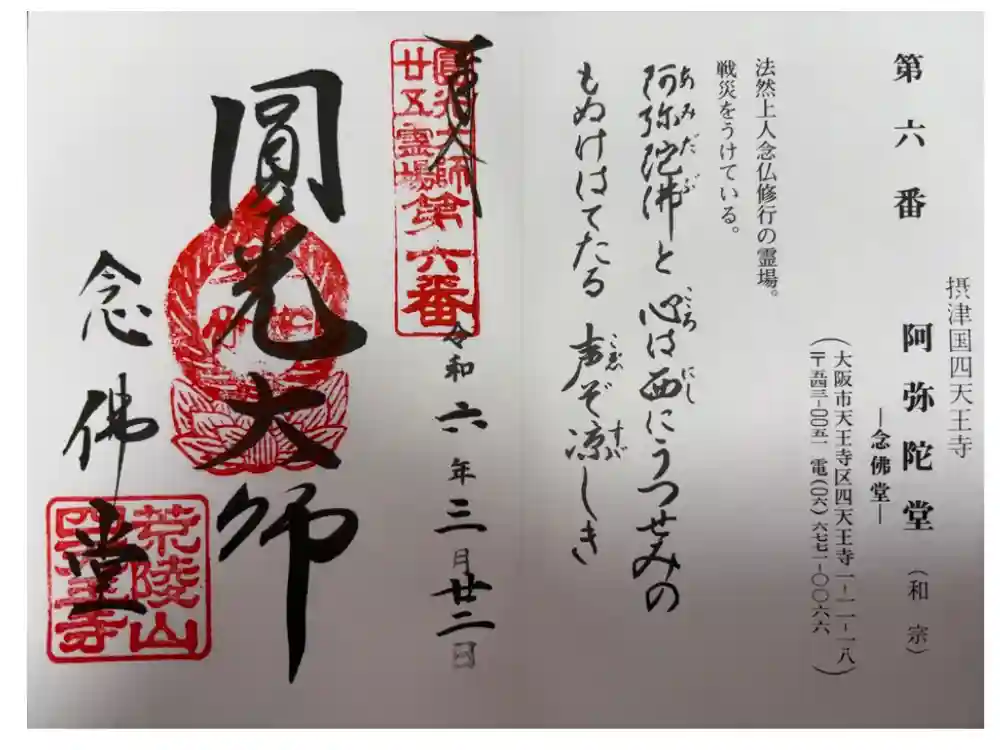 摂津国四天王寺
第六番 阿弥陀堂（和宗）
―念佛堂―
（大阪市天王寺区四天王寺一-一一-一八
〒五四三-〇〇五一 電(〇六)六七七一-〇〇六六）
法然上人念仏修行の霊場。
戦災をうけている。
阿弥陀佛と 心は西にうつせみの
あみだぶ こころ にし
もぬけはてたる 声ぞ涼しき
こゑ すゞ
奉拝
圓光大師
廿五霊場第六番
令和六年三月廿二日
圓光大師
念佛堂
荒陵山
四天王寺